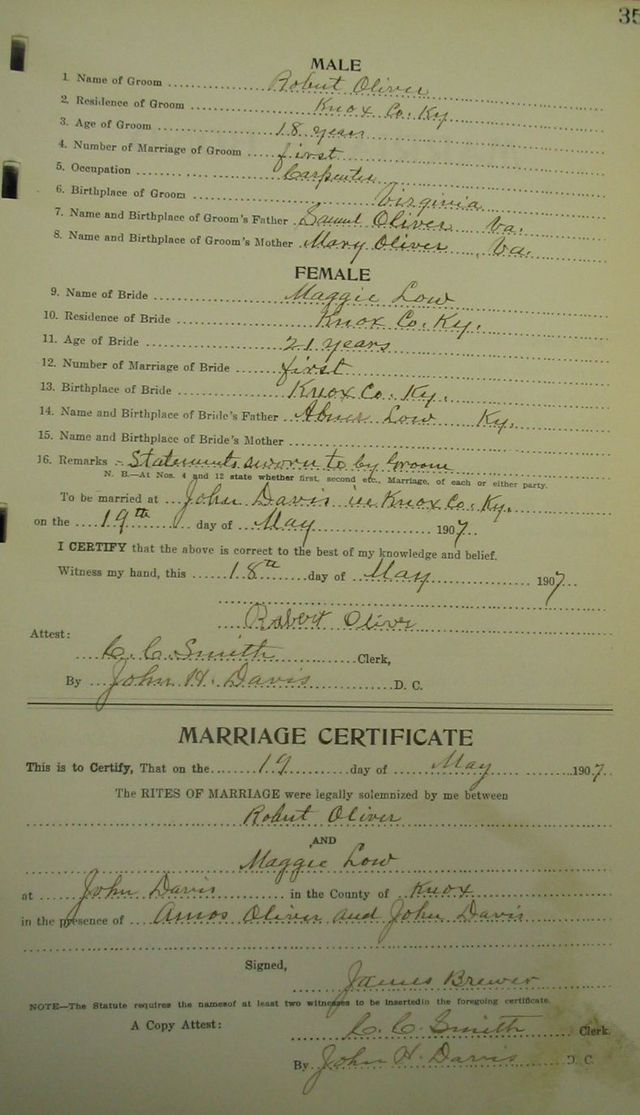 35
MALE
1. Name of Groom Robert Oliver
2. Residence of Groom Knox Co. Ky
3. Age of Groom 18 years
4. Number of Marriage of Groom first
5. Occupation Carpenter
6. Birthplace of Groom Virginia
7. Name and Birthplace of Groom's Father Samuel Oliver Va.
8. Name and Birthplace of Groom's Mother Mary Oliver, Va.
FEMALE
9. Name of Bride Maggie Low
10. Residence of Bride Knox Co. Ky.
11. Age of Bride 21 years
12. Number of Marriage of Bride first
13. Birthplace of Bride Knox Co. Ky.
14. Name and Birthplace of Bride's Father Abner Low Ky.
15. Name and Birthplace of Bride's Mother
16. Remarks - Statements sworn to by Groom
N. B.—At Nos. 4 and 12 state whether first, second etc., Marriage, of each or either party.
To be married at John Davis in Knox Co. Ky.
on the 19th day of May 1907
I CERTIFY that the above is correct to the best of my knowledge and belief.
Witness my hand, this 18th day of May 1907
Robert Oliver
Attest:
C. C. Smith Clerk,
By John H. Davis D. C.
MARRIAGE CERTIFICATE
This is to Certify, That on the 19 day of May 1907
The RITES OF MARRIAGE were legally solemnized by me between
Robert Oliver
AND
Maggie Low
at John Davis in the County of Knox
in the presence of Amos Oliver and John Davis
Signed,
James Brewer
NOTE—The Statute requires the namesof at least two witnesses to be insertedin the foregoing certificate.
A Copy Attest: C. C. Smith Clerk.
By John H. Davis D. C.